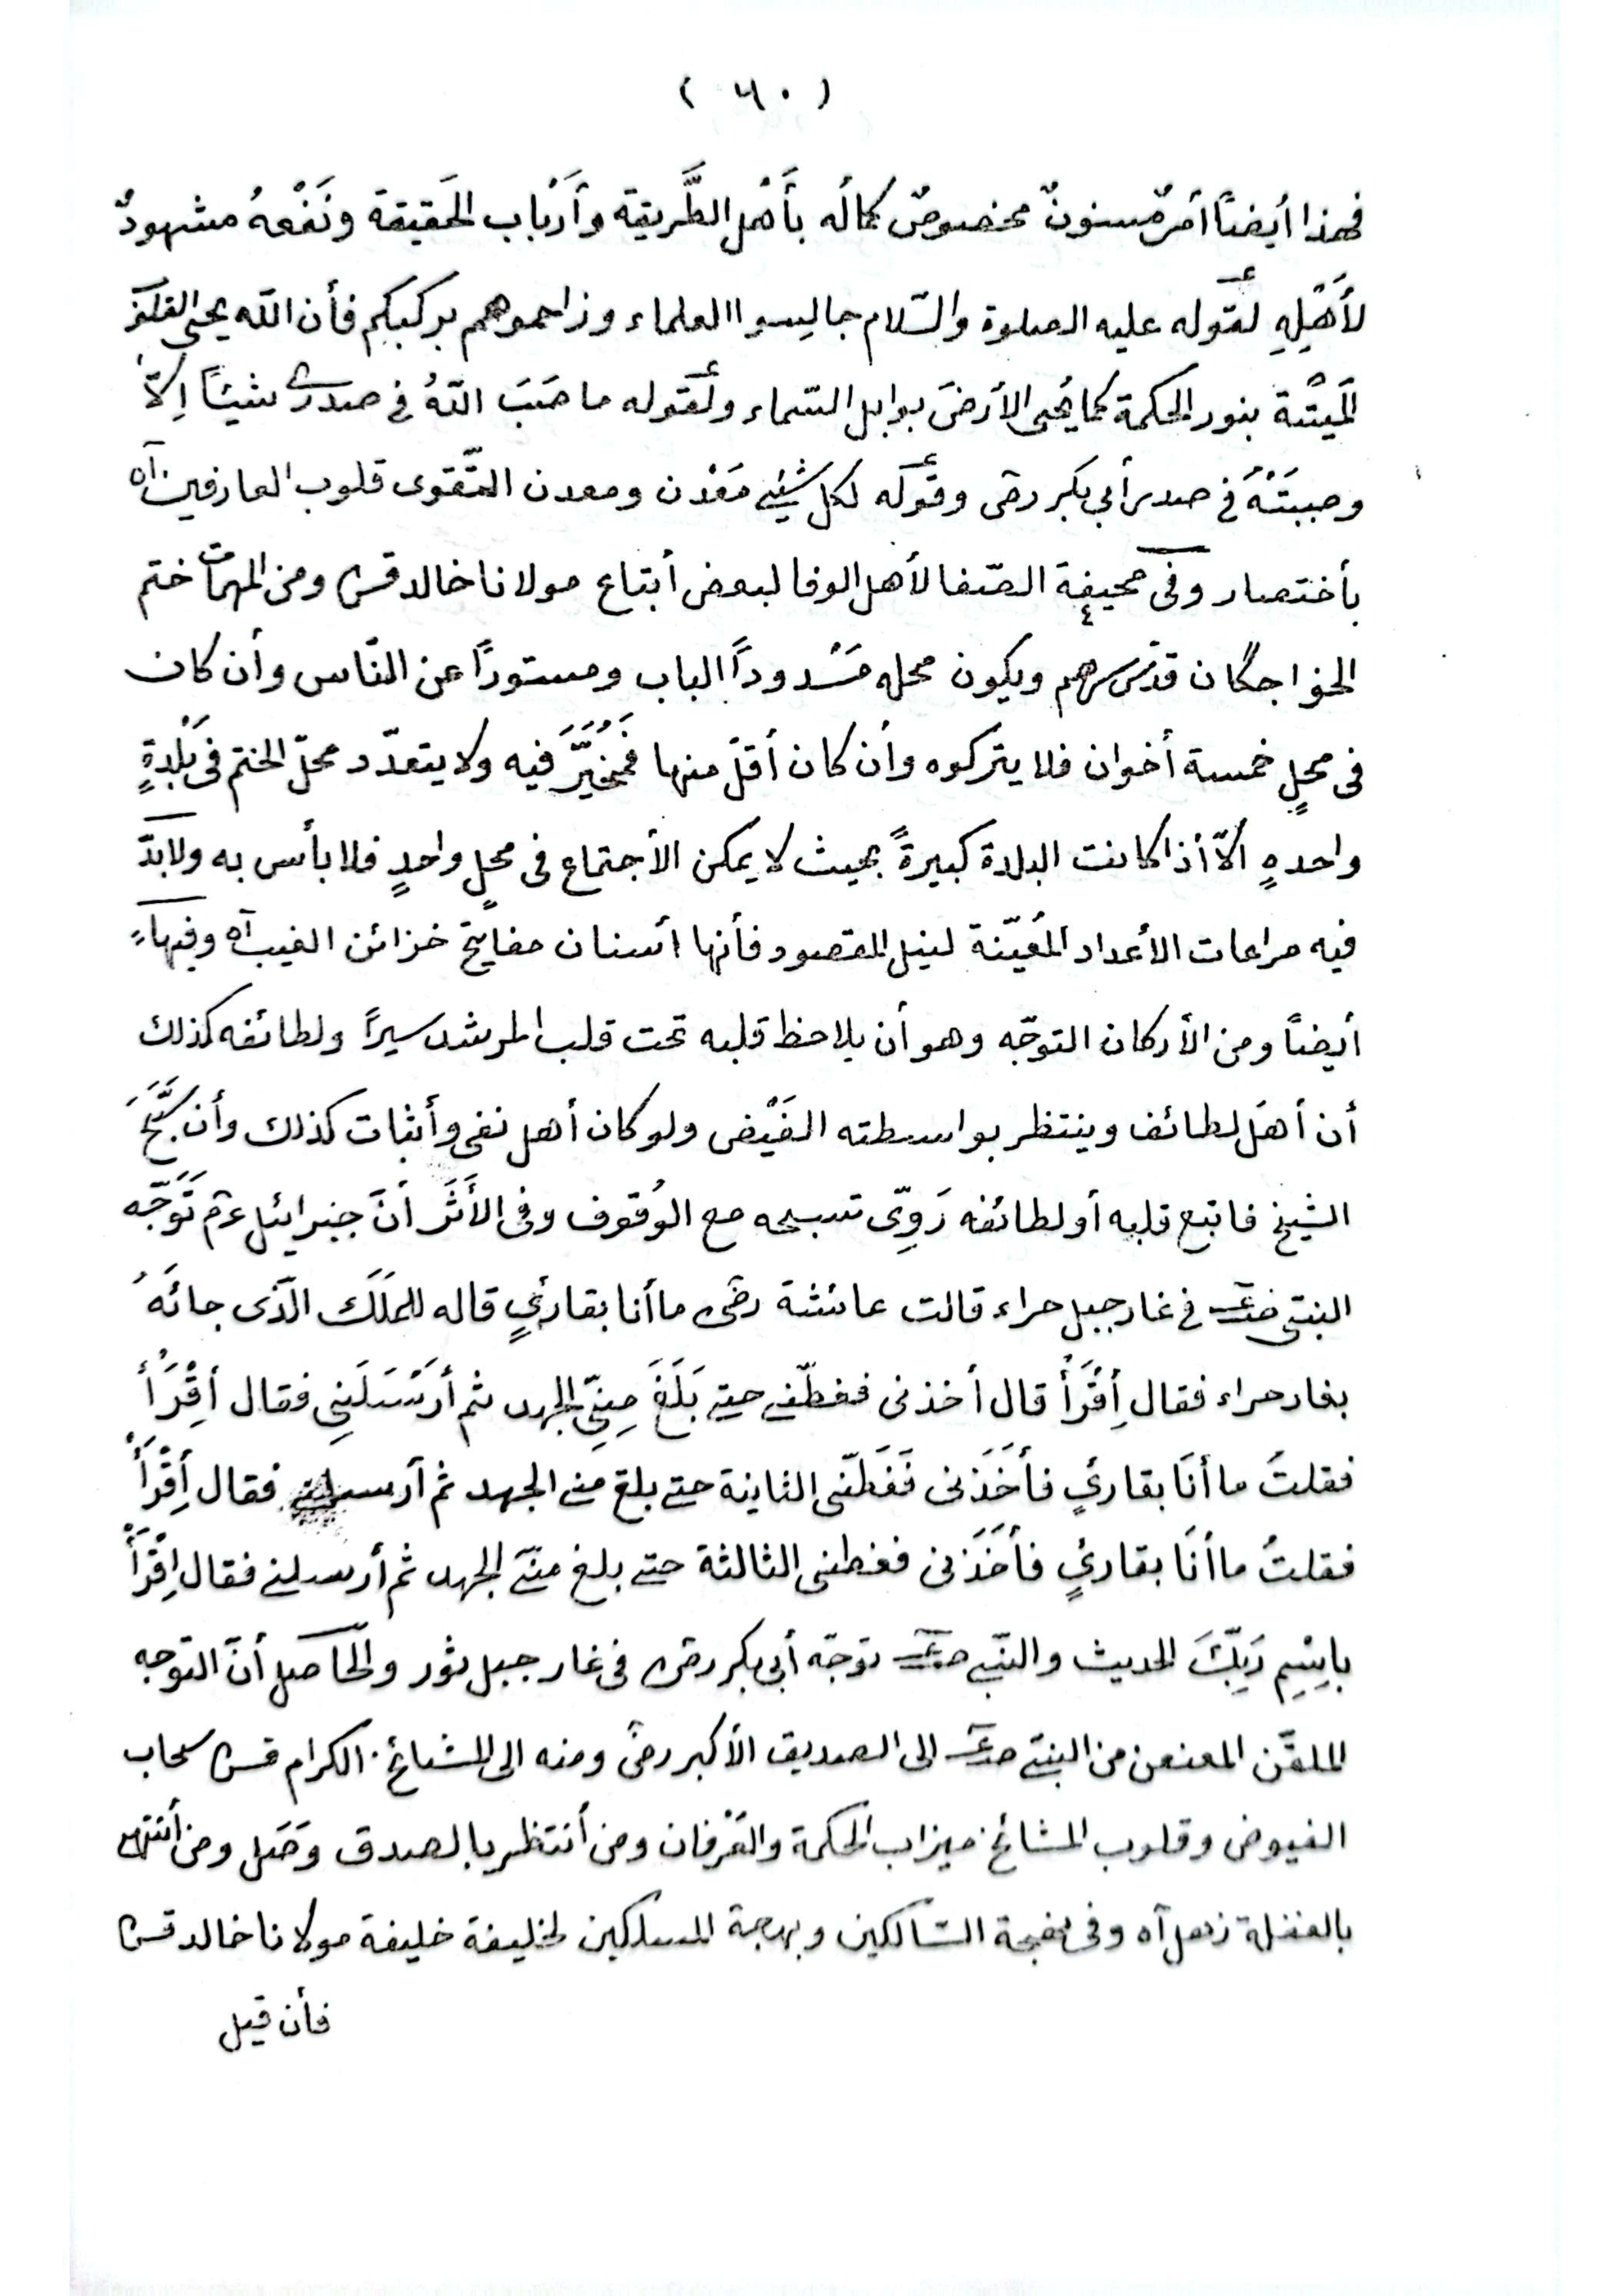 ( ٦٠ )
فهذا أيضاً أمرٌ مسنونٌ مخصوصٌ كمالُه بأَهْل الطَّريقة وأَرْباب الحَقيقة ونَفْعهُ مشهودٌ
لأَهْلِهِ لقوله عليه الصلوة والسّلام جاليسوا العلماء وزاحموهم بركبكم فأن الله يحي القلوب
المَيْتَة بنور الحكمة كما يُحيى الأرضَ بوابل السّماء ولقوله ما صَبَ اللهُ في صدرى شيئاً اِلاّ
وصببتَهُ في صدر أبي بكر رضى وقوله لكل شيئ مَعْدن ومعدن التّقوى قلوب العارفين آه
بأختصار وفى صحيفة الصّفا لأهل الوفا لبعض أتباع مولانا خالد قس ومن المهمات ختم
الخواجگان قدّس سرهم ويكون محله مَسْدوداً الباب ومستوراً عن النّاس وأن كان
فى محلٍ خمسة أخوان فلا يتركوه وأن كان أقلّ منها فَمُخَيَّرَ فيه ولا يتعدّد محلّ الختم فى بَلْدةٍ
واحدهٍ الاّ أذا كانت البلدة كبيرةً بحيث لا يمكن الأجتماع فى محلٍ واحدٍ فلا بأس به ولابدّ
فيه مراعات الأعداد المُعيّنة لنيل المقصود فأنها أسنان مفاتيح خزائن الغيب آه وفيها
أيضاً ومن الأركان التوجّه وهو أن يلاحظ قلبه تحت قلب المرشد سيراً ولطائفه كذلك
أن أهل لطائف وينتظر بواسطته الفَيْض ولو كان أهل نفى وأثبات كذلك وأن سَبَّحَ
الشيخ فاتبع قلبه أو لطائفه رَوِىّ تسبيحه مع الوُقوف وفى الأَثَر أنّ جبرائيل عم تَوَجّه
النبتى صلعم في غار جبل حراء قالت عائشة رضى ما أنا بقارئٍ قاله للمَلَك الّذى جائَهُ
بغار حراء فقال أِقْرَأْ قال أخذنى فغطّنى حتى بَلَغَ مِنِّى الجهد ثم أرْسَلَنِى فقال أِقْرَأْ
فقلتُ ما أنَا بقارئٍ فأخَذَنى فَغَطّنى الثانية حتى بلغ منى الجهد ثم أرسلنى فقال أِقْرَأْ
فقلتُ ما أنَا بقارئٍ فأخَذَنى فغطنى الثالثة حتى بلغ منّى الجهد ثم أرسلنى فقال اِقْرَأْ
بِاِسْمِ رَبِّكَ الحديث والنّبى صلعم توجّه أبى بكر رضى فى غار جبل ثور والحّاصل أنّ التوجه
الملقّن المعنعن من النبىّ صلعم الى الصديق الأكبر رضى ومنه الى المشائخ الكرام قس سحاب
الفيوض وقلوب المشائخ ميزاب الحكمة والعَرْفان ومن أنتظر بالصدق وَصَل ومن أنتهى
بالغفلة زهل آه وفى بهجة السّالكين وبهجة المسلكين لخليفة خليفة مولانا خالد قس
فأن قيل